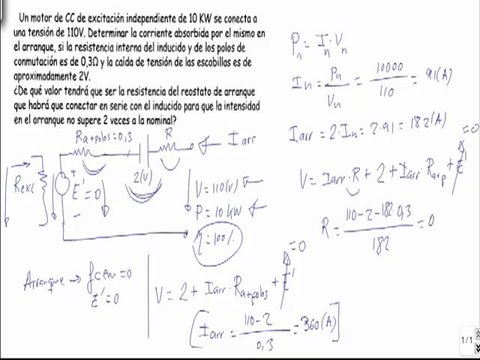 Un motor de CC de excitación independiente de 10 KW se conecta a
una tensión de 110V. Determinar la corriente absorbida por el mismo en
el arranque, si la resistencia interna del inducido y de los polos de
conmutación es de 0,3Ω y la caída de tensión de las escobillas es de
aproximadamente 2V.
¿De qué valor tendrá que ser la resistencia del reostato de arranque
que habrá que conectar en serie con el inducido para que la intensidad
en el arranque no supere 2 veces a la nominal?
Pn = In · Vn
In = Pn / Vn = 10000 / 110 = 91(A)
Iarr = 2·In = 2·91 = 182(A)
=0
V = Iarr·R + 2 + Iarr·Ra+p + E'
R = 110-2-182·0,3 / 182 = 0
Ra+polos=0,3
R
Iarr
2(V)
Rexc
+
E'=0
-
V=110(V)
P=10kW
η=100%
Arranque → fcem=0
E'=0
=0
V = 2 + Iarr·Ra+polos + E'
Iarr = 110-2 / 0,3 = 360(A)
1/1